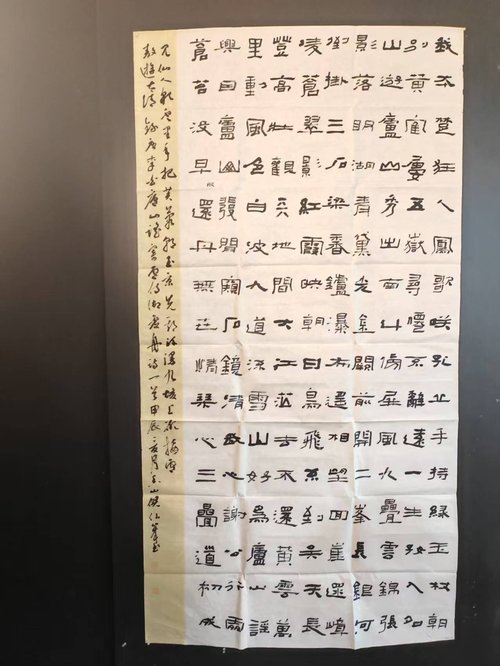 我本楚狂人鳳歌咲孔丘手持綠玉杖朝
別黃鶴樓五嶽尋僊不辭遠一生好入名
山遊廬山秀出南斗傍屏風九疊雲錦張
影落明湖青黛光金闕前開二峯長銀河
倒掛三石梁香鑪瀑布遙相望回崖遝嶂
凌蒼翠影紅霞映朝日鳥飛不到吳天長
登高壯觀天地間大江茫去不還黃雲萬
里動風色白波九道流雪山好為廬山謠
興因廬山發閒窺石鏡清我心謝公行處
蒼苔没早服還丹無世情琴心三疊道初成
見仙人彩雲裏手把芙蓉朝玉京先期汗漫九垓上願接盧
敖遊太清 錄唐李白廬山謠寄盧侍御虛舟詩一首甲辰夏月書